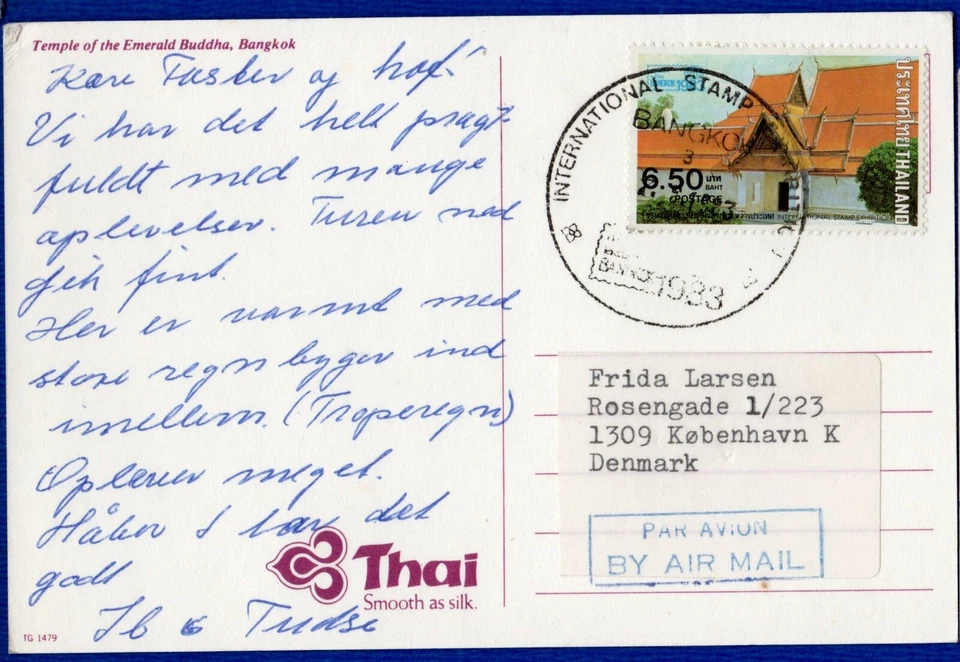 Temple of the Emerald Buddha, Bangkok
Kære Faster og
Vi har det helt pragt-
fuldt med mange
oplevelser. Turen ned
gik fint.
Her er varmt med
store regnbyger ind
imellem. (Troperegn)
Oplever meget.
Håber I har det
godt
Ib & Trudse
Thai
Smooth as silk.
TG 1479
INTERNATIONAL STAMP EXHIBITION
BANGKOK
3
BANGKOK
1983
ประเทศไทย THAILAND
BANGKOK 1983
6.50 บาท
BAHT
POSTAGE
INTERNATIONAL STAMP EXHIBITION
Frida Larsen
Rosengade 1/223
1309 København K
Denmark
PAR AVION
BY AIR MAIL